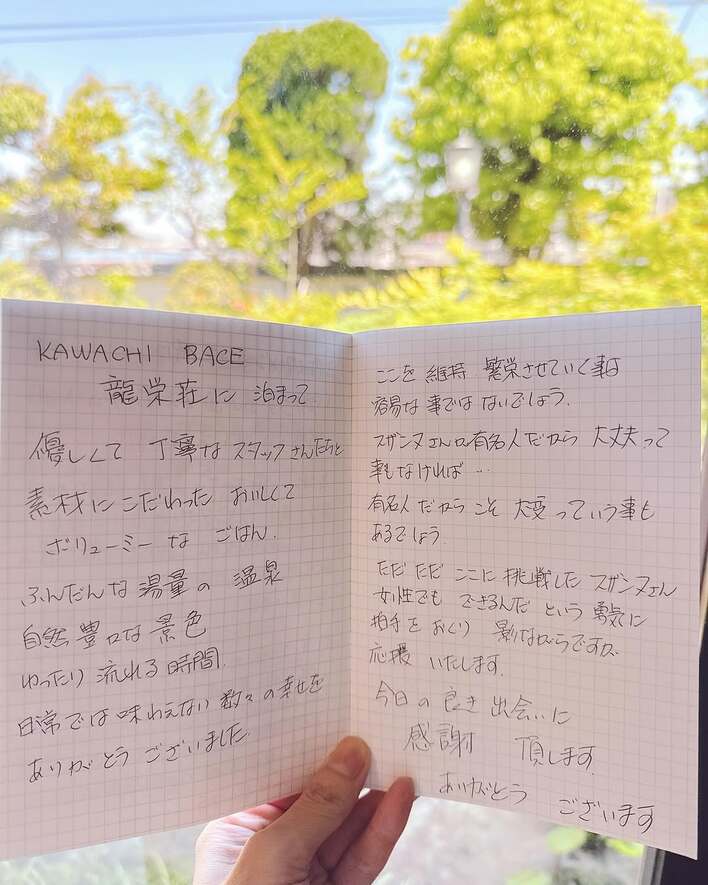 KAWACHI BACE
龍栄荘に 泊まって
優しくて 丁寧な スタッフさんたちと
素材に こだわった おいしくて
ボリューミー な ごはん.
ふんだんな 湯量の 温泉
自然 豊かな 景色
ゆったり 流れる 時間.
日常では 味わえない 数々の幸せを
ありがとう ございました.
ここを 維持 繁栄させていく事は
容易な 事では ないでしょう.
スザンヌさんは有名人だから 大丈夫って
事もなければ…
有名人 だから こそ 大変 っていう事も
あるでしょう.
ただ ただ ここに 挑戦した スザンヌさん
女性でも できるんだ という 勇気に
拍手を おくり 影ながらですが
応援 いたします.
今日の 良き 出会いに
感謝 頂します.
ありがとう ございます